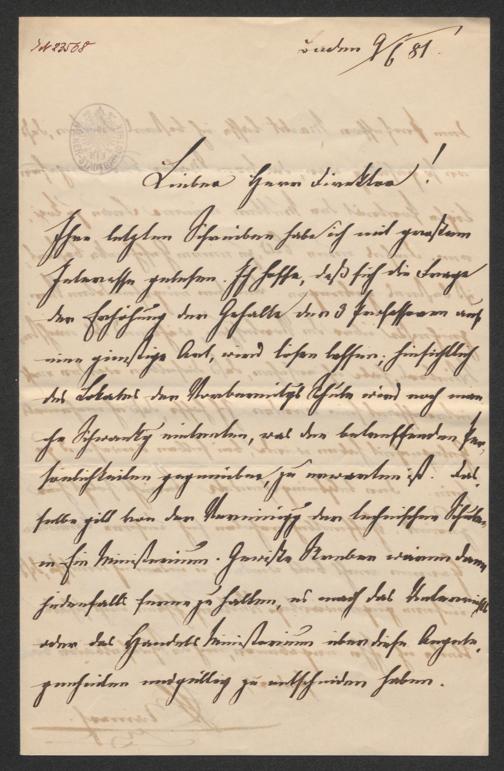 JN 23568
Baden 9/6 81.
Lieber Herr Direktor!
Ihre letzten Schreiben habe ich mit großem
Interesse gelesen. Ich hoffe, daß sich die Frage
der Erhöhung der Gehalte der 3 Professoren auf
eine günstige Art, wird lösen lassen; hinsichtlich
des Lokales der Vorbereitungs Schule wird noch man-
che Schwankg eintreten, was den betreffenden Per-
sönlichkeiten gegenüber, zu erwarten ist. Das-
selbe gilt von der Vereinigg der technischen Schulen
in Ein Ministerium. Gewisse wären dann
jedenfalls ferne zu halten, es mag das Unterrichts
oder das Handels Ministerium über diese Angele-
genheiten endgültig zu entscheiden haben.